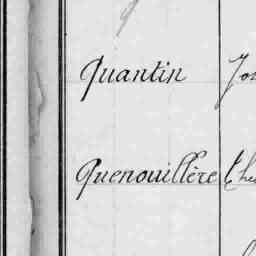 Quantin
Quenouillère